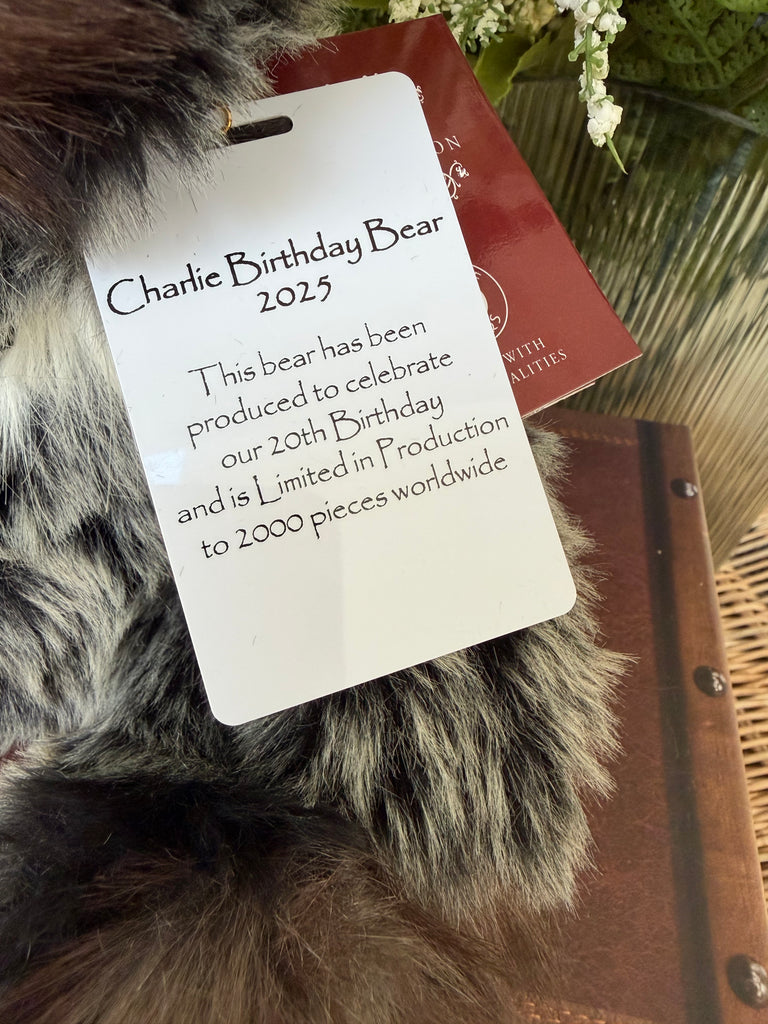 Charlie Birthday Bear
2025
This bear has been
produced to celebrate
our 20th Birthday
and is Limited in Production
to 2000 pieces worldwide
WITH